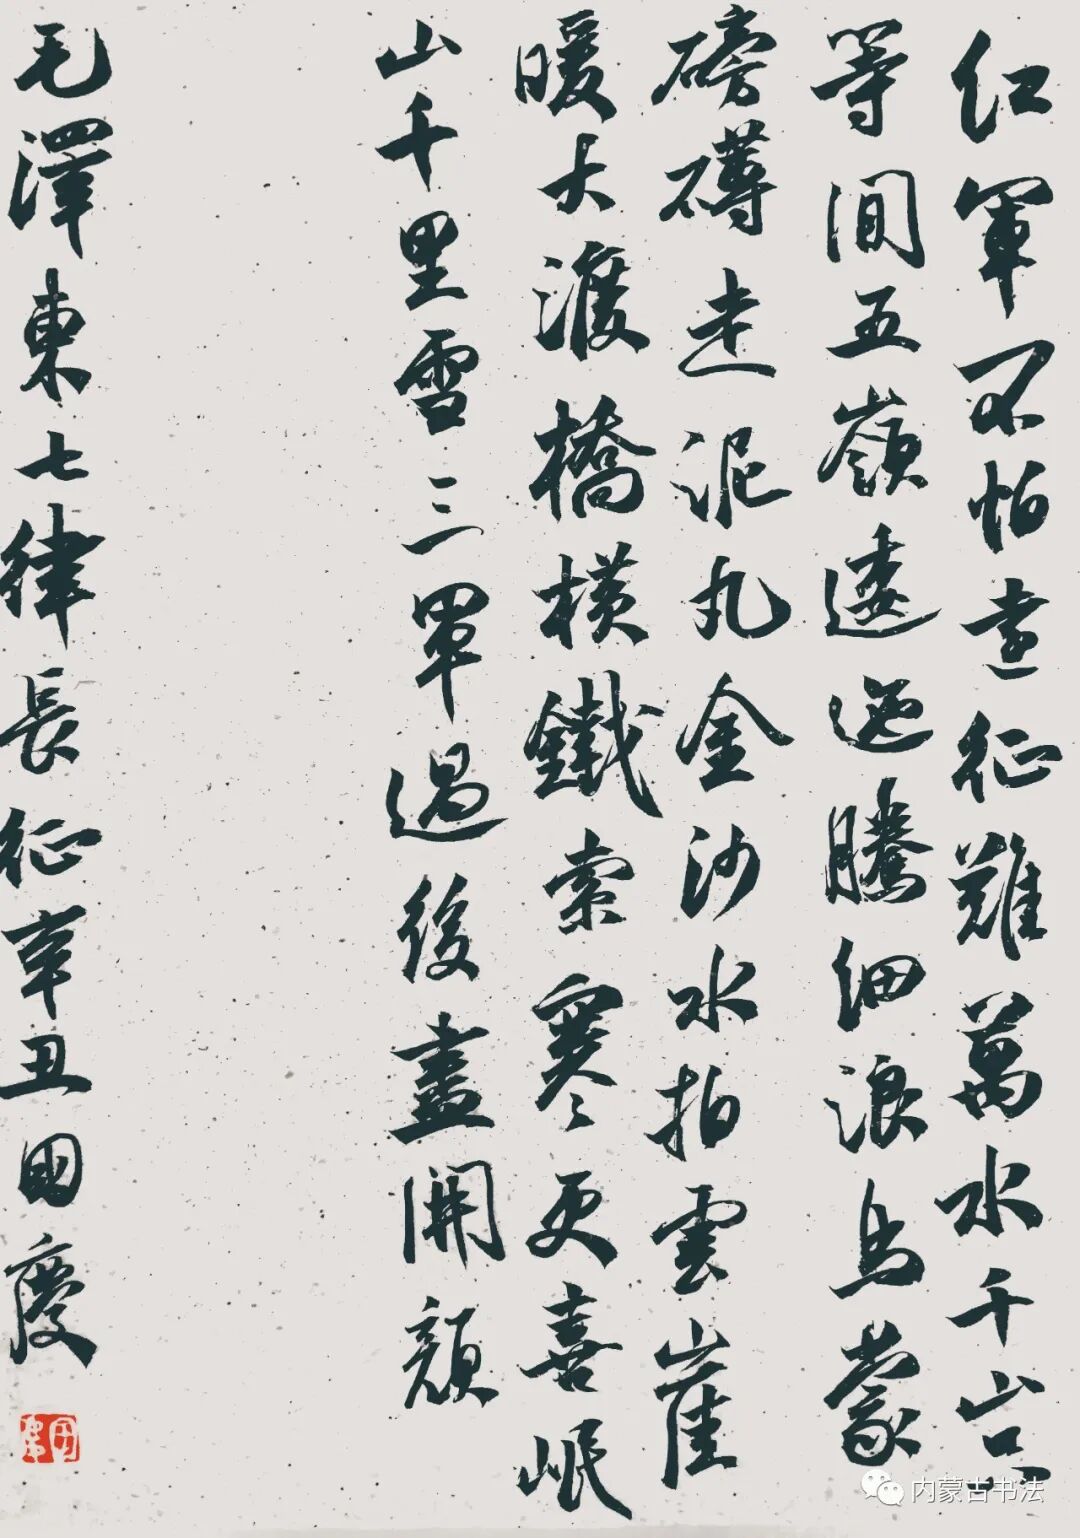 紅軍不怕遠征難萬水千山只
等間五嶺逶迤騰細浪烏蒙
磅礴走泥丸金沙水拍雲崖
暖大渡橋橫鐵索寒更喜岷
山千里雪三軍過後盡開顏
毛澤東七律長征辛丑國慶
内蒙古书法